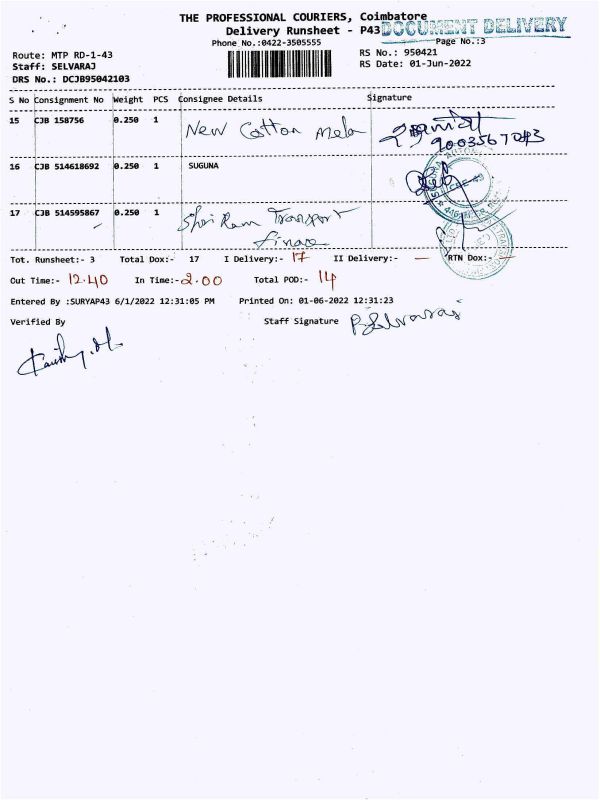 THE PROFESSIONAL COURIERS, Coimbatore
Delivery Runsheet - P43 DOCUMENT DELIVERY
Phone No.:0422-3505555 Page No.:3
Route: MTP RD-1-43 RS No.: 950421
Staff: SELVARAJ RS Date: 01-Jun-2022
DRS No.: DCJB95042103
S No Consignment No Weight PCS Consignee Details Signature
15 CJB 158756 0.250 1 New Cotton Mela
16 CJB 514618692 0.250 1 SUGUNA
17 CJB 514595867 0.250 1 Shri Ram Transport
Finace
Tot. Runsheet:- 3 Total Dox:- 17 I Delivery:- 17 II Delivery:- — RTN Dox:- —
Out Time:- 12.40 In Time:- 2.00 Total POD:- 14
Entered By :SURYAP43 6/1/2022 12:31:05 PM Printed On: 01-06-2022 12:31:23
Verified By Staff Signature P. Selvaraj